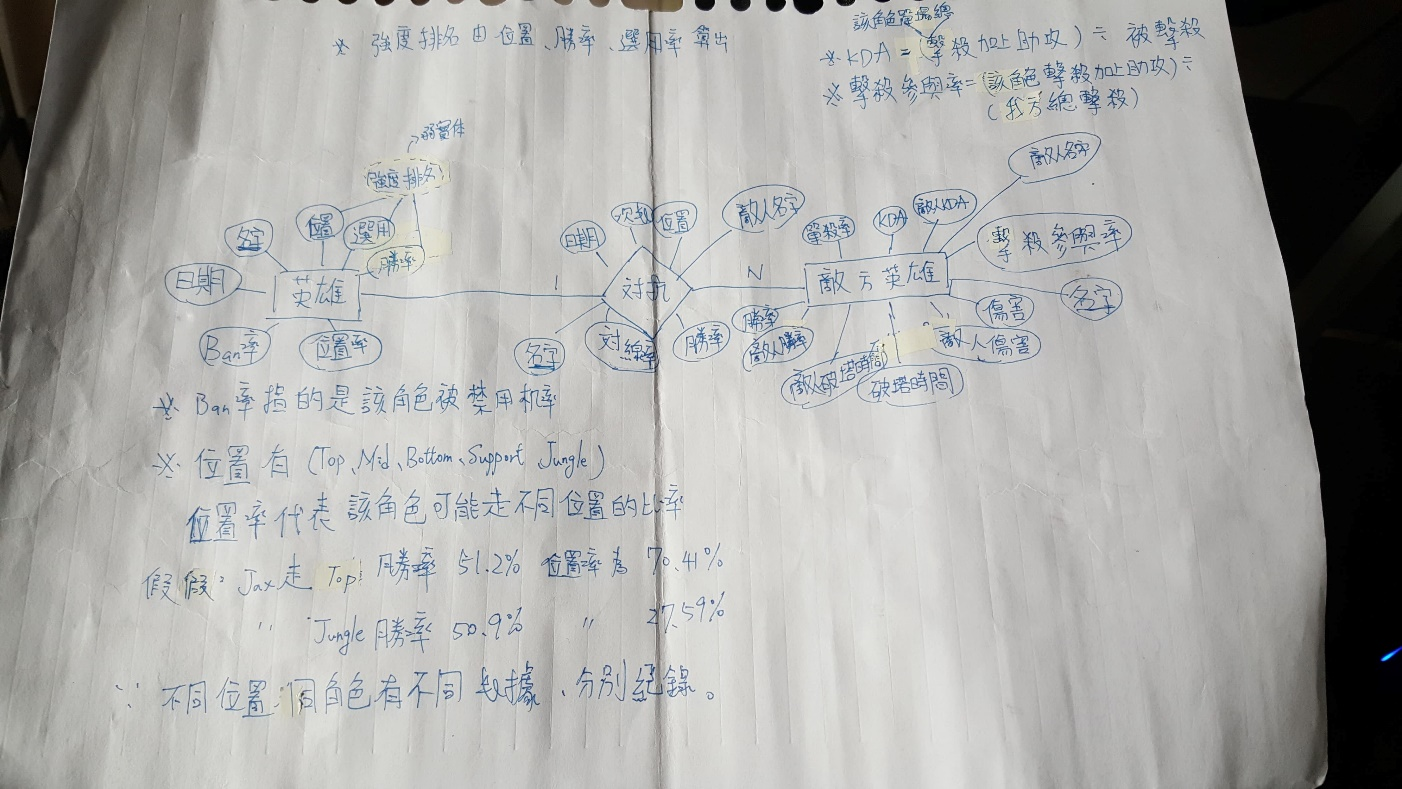 ※ 強度排名由位置、勝率、選用率算出
該角色整場總
※ KDA = (擊殺加上助攻) ÷ 被擊殺
※ 擊殺參與率 = (該角色擊殺加上助攻) ÷
(我方總擊殺)
弱實体
強度排名
名字
位置
選用
勝率
日期
英雄
Ban率
位置率
1
日期
次數
位置
敵人名字
対抗
名字
対線率
勝率
N
單殺率
KDA
敵人KDA
敵人名字
擊殺參與率
敵方英雄
名字
勝率
敵人勝率
敵人破塔時間
破塔時間
傷害
敵人傷害
※ Ban率指的是該角色被禁用机率
※ 位置有 (Top、Mid、Bottom、Support、Jungle)
位置率代表該角色可能走不同位置的比率
假假: Jax走 Top 勝率 51.2% 位置率為 70.41%
〃 Jungle 勝率 50.9% 〃 27.59%
∵ 不同位置 同角色有不同數據、分別紀錄。